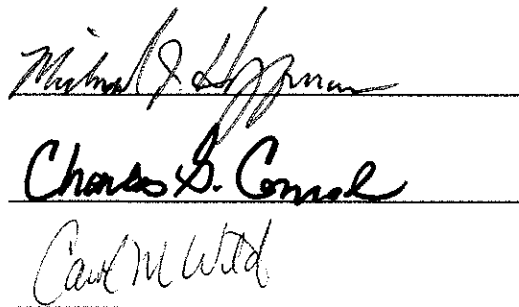 Michael J. Hoffman
Charles G. Conrad
Carol M Wild